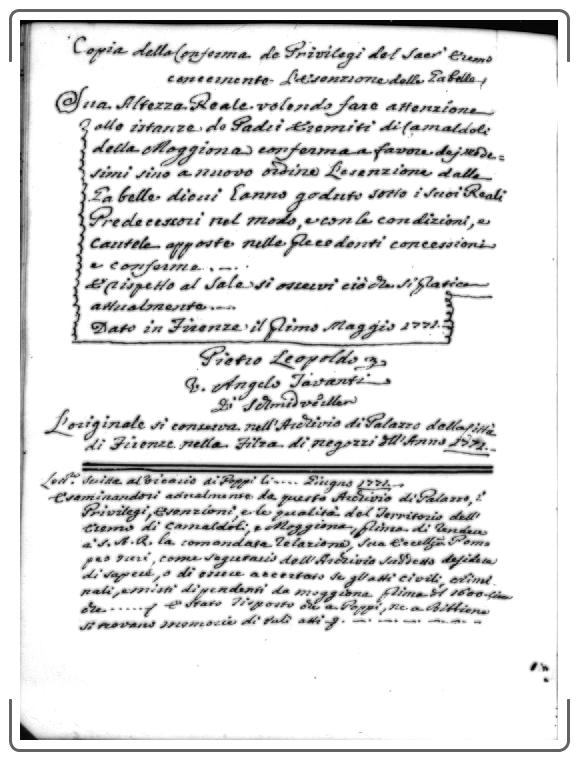 Copia della Conferma de Privilegi del Sacr Eremo
concernente L'esenzione delle Tabelle
Sua Altezza Reale volendo fare attenzione
alle istanze de Padri Eremiti di Camaldoli
della Moggiona conferma a favore dej mede=
simi sino a nuovo ordine L'esenzione dalle
Tabelle di cui l'anno goduto sotto i suoi Reali
Predecessori nel modo, e con le condizioni, e
Cautele apposte nelle precedenti concessioni
e conforme . _ .
E rispetto al Sale si osservi ciò che si pratica
attualmente . _ .
Dato in Firenze il primo Maggio 1771.
Pietro Leopoldo
V. Angelo Tavanti
Di Schmidveiller
L'originale si conserva nell'Archivio di Palazzo della Città
di Firenze nella Filza di negozzi dell'Anno 1771.
Lettra scritta al Vicario di Poppi li .... Giugno 1771.
Esaminandosi adualmente da questo Archivio di Palazzo, i
Privilegi, Esenzioni, e le qualità del Territorio dell'
Eremo di Camaldoli, e Moggiona, prima di rendere
a S. A. R. la comandata relazione, Sua Eccellza Pomo
peo Neri, come segretario dell'Archivio suddetto desidera
di sapere, o di essere accertato se gli atti civili, crimi
nali, e misti dipendenti da moggiona prima del 1600
che ......
E stato risposto che a Poppi, ne a Bibbiena
si trovano memorie di tali atti